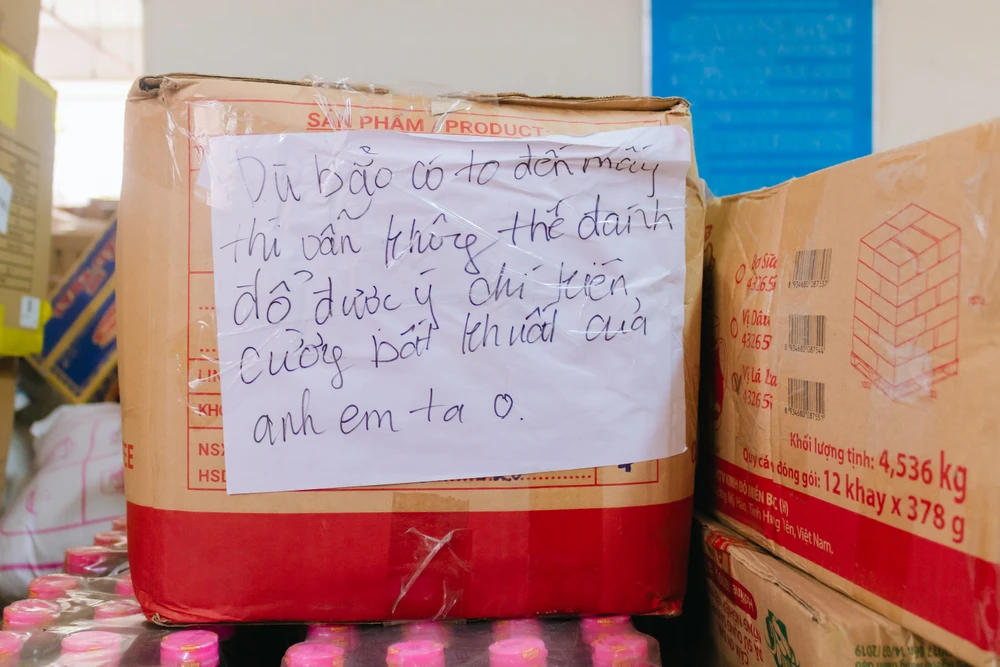 SẢN PHẨM / PRODUCT
Dù bão có to đến mấy
thì vẫn không thể đánh
đổ được ý chí kiên,
cường bất khuất của
anh em ta
NSX
HSD
Bơ Sữa
43265
8 934680
Vị Dâu
43265
8 934680
Vị Lá
43265
8 934680
Khối lượng tịnh: 4,536 kg
Quy cách đóng gói: 12 khay x 378 g
KINH ĐÔ MIỀN BẮC
Việt Nam.